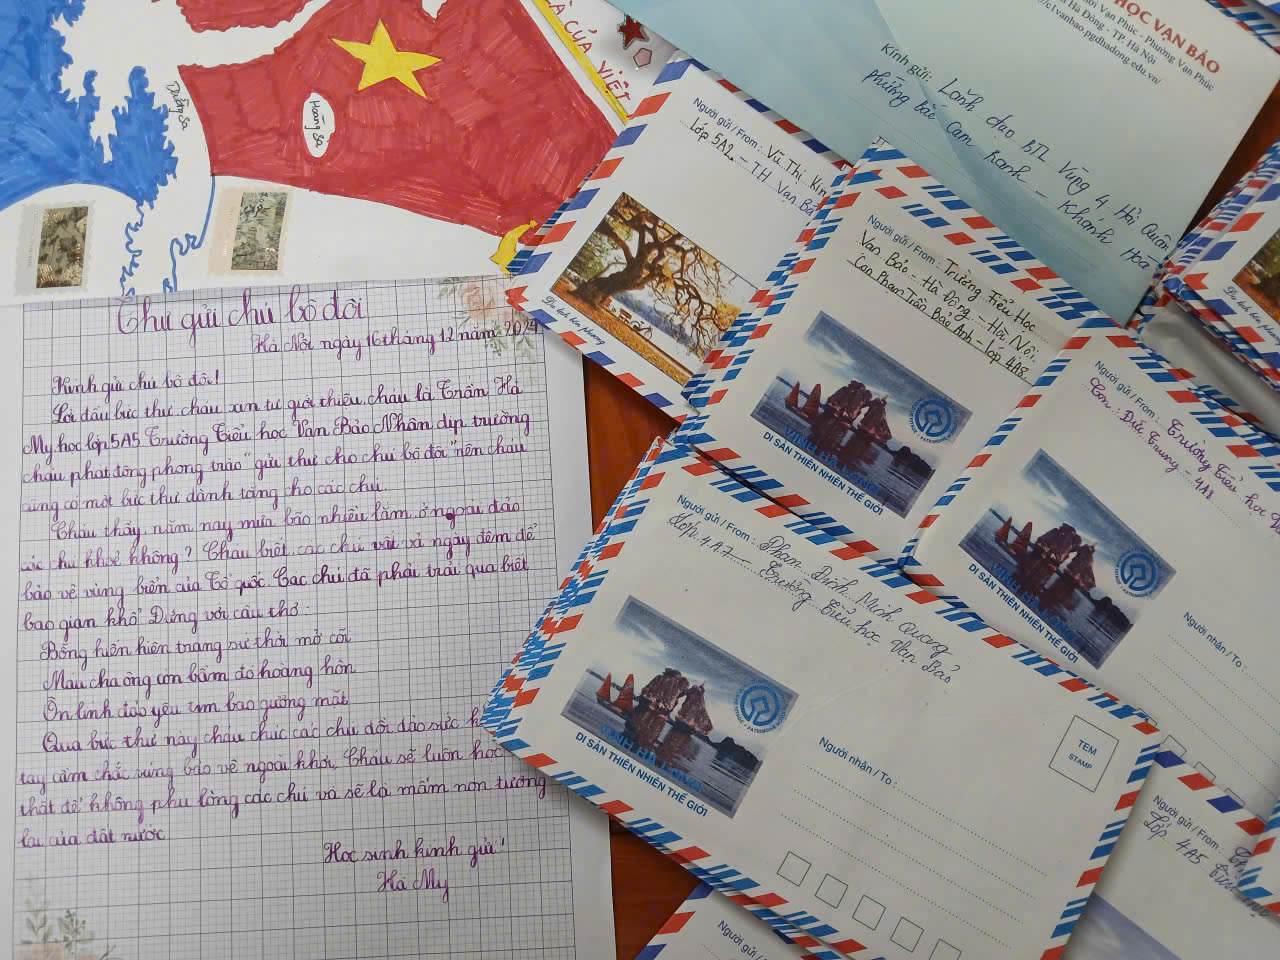 À CỦA VIỆT
Trường Sa
Hoàng Sa
Thư gửi chú bộ đội
Hà Nội ngày 16 tháng 12 năm 2024
Kính gửi chú bộ đội!
Lời đầu bức thư cháu xin tự giới thiệu, cháu là Trần Hà
My, học lớp 5A5 Trường Tiểu học Vạn Bảo. Nhân dịp trường
cháu phát động phong trào "gửi thư cho chú bộ đội" nên cháu
cũng có một bức thư dành tặng cho các chú.
Cháu thấy năm nay mưa bão nhiều lắm, ở ngoài đảo
các chú khoẻ không? Cháu biết các chú vất vả ngày đêm để
bảo vệ vùng biển của Tổ quốc. Các chú đã phải trải qua biết
bao gian khổ. Đúng với câu thơ:
Bỗng hiển hiện trang sử thời mở cõi
Máu cha ông còn bầm đỏ hoàng hôn
Ôn linh đảo yêu tim bao gương mặt
Qua bức thư này cháu chúc các chú dồi dào sức
tay cầm chắc súng bảo vệ ngoài khơi. Cháu sẽ luôn học
thật để không phụ lòng các chú và sẽ là mầm non tương
lai của đất nước.
Học sinh kính gửi!
Hà My
HỌC VẠN BẢO
Vạn Phúc - Phường Vạn Phúc
Hà Đông - TP. Hà Nội
c1vanbao.pgdhadong.edu.vn/
Kính gửi: Lãnh đạo BTL Vùng 4 Hải Quân
phòng bắc Cam Ranh - Khánh Hoà
Người gửi / From: Vũ Thị Kim
Lớp 5A2 - T.H Vạn Bả
Du lịch bốn phương
Người gửi / From: Trường Tiểu Học
Vạn Bảo - Hà Đông - Hà Nội.
Con Phạm Trần Bảo Anh - lớp 4A8
VỊNH HẠ LONG
DI SẢN THIÊN NHIÊN THẾ GIỚI
Người gửi / From: Trường Tiểu học
Con: Đức Trung - 4A8
VỊNH HẠ LONG
DI SẢN THIÊN NHIÊN THẾ GIỚI
Người nhận / To:
Người gửi / From: Phạm Đình Minh Quang
Lớp 4A7 - Trường Tiểu học Vạn Bảo
VỊNH HẠ LONG
DI SẢN THIÊN NHIÊN THẾ GIỚI
Người nhận / To:
TEM
STAMP
Người gửi / From:
Lớp 4A5
Người gửi / From: